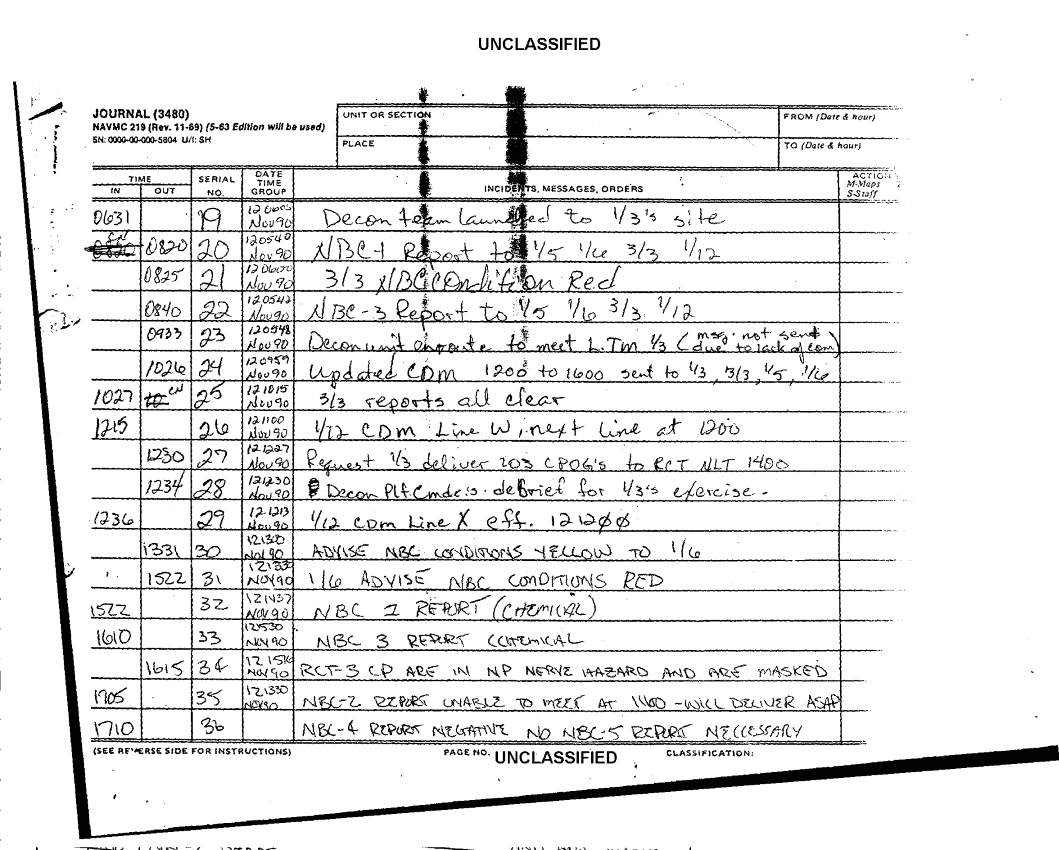 UNCLASSIFIED
JOURNAL (3480)
NAVMC 219 (Rev. 11-69) (5-63 Edition will be used)
SN: 0000-00-000-5804 U/I: SH
UNIT OR SECTION
PLACE
FROM (Date & hour)
TO (Date & hour)
TIME
IN OUT
SERIAL NO.
DATE TIME GROUP
INCIDENTS, MESSAGES, ORDERS
ACTION
M-Maps
S-Staff
0631 19 Nov 90 Decon team launched to 1/3's site
0820 20 120540 Nov 90 NBC-1 Report to 1/5 1/6 3/3 1/12
0825 21 120600 Nov 90 3/3 NBC Condition Red
0840 22 120542 Nov 90 NBC-3 Report to 1/5 1/6 3/3 1/12
0933 23 120548 Nov 90 Decon unit enroute to meet L.Tm 1/3 (msg. not send due to lack of com)
1026 24 120959 Nov 90 Updated CDM 1200 to 1600 sent to 1/3, 3/3, 1/5, 1/6
1027 25 121015 Nov 90 3/3 reports all clear
1215 26 121100 Nov 90 1/12 CDM Line W, next line at 1200
1230 27 121227 Nov 90 Request 1/3 deliver 203 CPOG's to RCT NLT 1400
1234 28 121230 Nov 90 Decon Plt Cmdr's debrief for 1/3's exercise.
1236 29 121213 Nov 90 1/12 CDM Line X eff. 121200
1331 30 121320 Nov 90 ADVISE NBC CONDITIONS YELLOW TO 1/6
1522 31 Nov 90 1/6 ADVISE NBC CONDITIONS RED
1522 32 121437 Nov 90 NBC 1 REPORT (CHEMICAL)
1610 33 Nov 90 NBC 3 REPORT (CHEMICAL
1615 34 121516 Nov 90 RCT-3 CP ARE IN NP NERVE HAZARD AND ARE MASKED
1705 35 121330 Nov 90 NBC-2 REPORT UNABLE TO MEET AT 1400 - WILL DELIVER ASAP
1710 36 NBC-4 REPORT NEGATIVE NO NBC-5 REPORT NECCESSARY
(SEE REVERSE SIDE FOR INSTRUCTIONS)
PAGE NO.
UNCLASSIFIED
CLASSIFICATION: